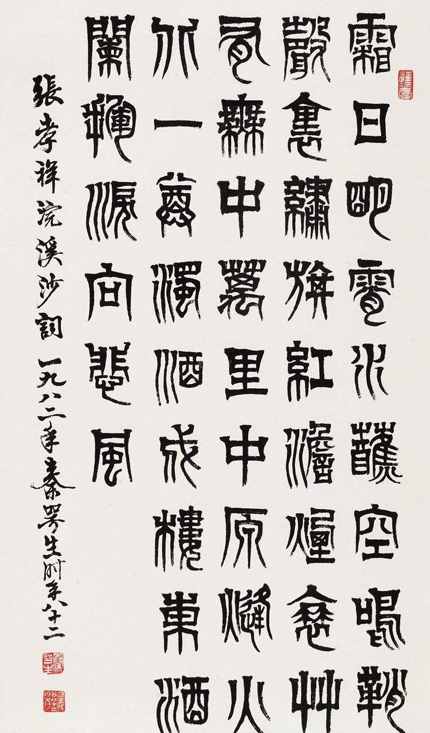 霜日明霄水蘸空鳴鞘
聲裏繡旂紅澹煙衰艸
有無中萬里中原熢火
北一尊濁酒戍樓東酒
闌揮淚向悲風
張孝祥浣溪沙詞一九八二年秦咢生時年八十二